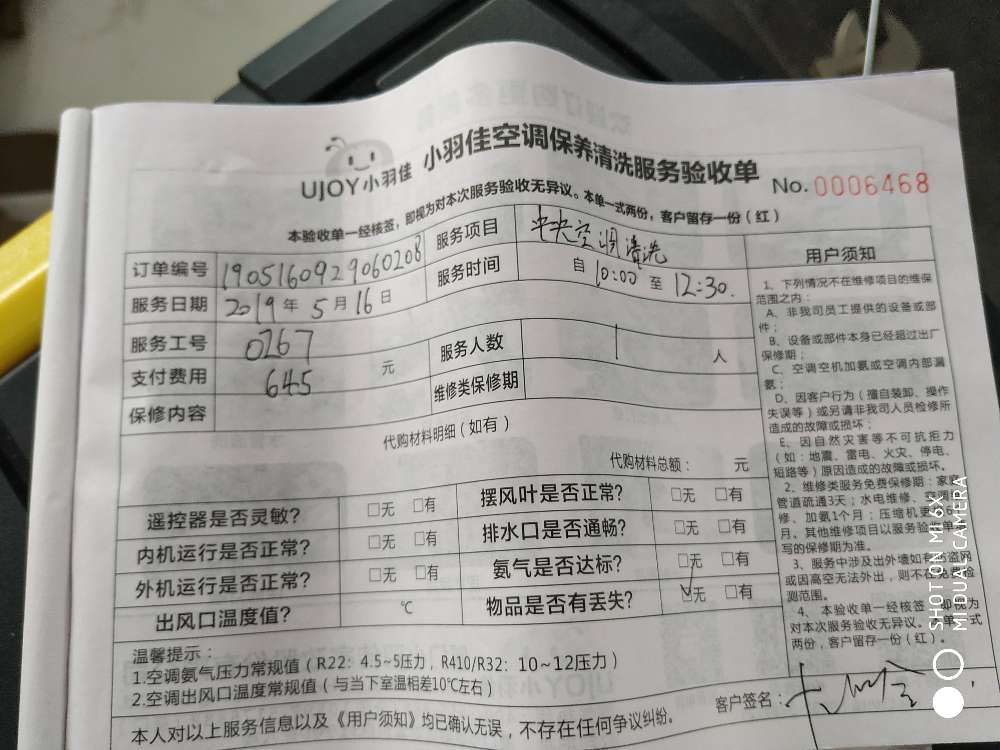 UJOY小羽佳 小羽佳空调保养清洗服务验收单 No.0006468
本验收单一经核签，即视为对本次服务验收无异议。本单一式两份，客户留存一份（红）
订单编号 1905160929060208 服务项目 中央空调清洗
服务日期 2019年5月16日 服务时间 自10:00至12:30.
服务工号 0267 服务人数 1 人
支付费用 645 元 维修类保修期
保修内容
代购材料明细（如有）
代购材料总额： 元
遥控器是否灵敏？ □无 □有 摆风叶是否正常？ □无 □有
内机运行是否正常？ □无 □有 排水口是否通畅？ □无 □有
外机运行是否正常？ □无 □有 氨气是否达标？ □无 □有
出风口温度值？ ℃ 物品是否有丢失？ ☑无 □有
温馨提示：
1.空调氨气压力常规值（R22：4.5~5压力，R410/R32：10~12压力）
2.空调出风口温度常规值（与当下室温相差10℃左右）
本人对以上服务信息以及《用户须知》均已确认无误，不存在任何争议纠纷。 客户签名：
用户须知
1、下列情况不在维修项目的维保
范围之内：
A、非我司员工提供的设备或部
件；
B、设备或部件本身已经超过出厂
保修期；
C、空调空机加氨或空调内部漏
氨；
D、因客户行为（擅自装卸、操作
失误等）或另请非我司人员检修所
造成的故障或损坏；
E、因自然灾害等不可抗拒力
（如：地震、雷电、火灾、停电、
短路等）原因造成的故障或损坏。
2、维修类服务免费保修期：家
管道疏通3天；水电维修、空调
修、加氨1个月；压缩机更
月。其他维修项目以服务验收单
写的保修期为准。
3、服务中涉及出外墙如有防盗网
或因高空无法外出，则不在免费检
测范围。
4、本验收单一经核签，即视为
对本次服务验收无异议。本单一式
两份，客户留存一份（红）。
SHOT ON MI 6X
MI DUAL CAMERA